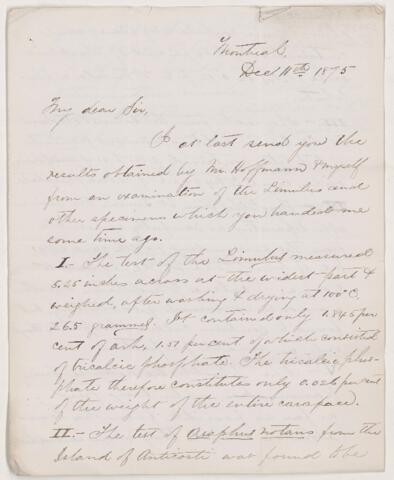 Montreal,
Dec 11th 1875
My dear Sir,
I at last send you the
results obtained by Mr. Hoffmann & myself
from an examination of the Limulus and
other specimens which you handed me
some time ago.
I.- The test of the Limulus measured
5.25 inches across at the widest part &
weighed, after washing & drying at 100°C,
26.5 grammes. It contained only 1.845 per
cent of ash, 1.51 per cent of which consisted
of tricalcic phosphate. The tricalcic phos-
phate therefore constitutes only 0.028 per cent
of the weight of the entire carapace.
II.- The test of Asaphus notans from the
Island of Anticosti was found to be